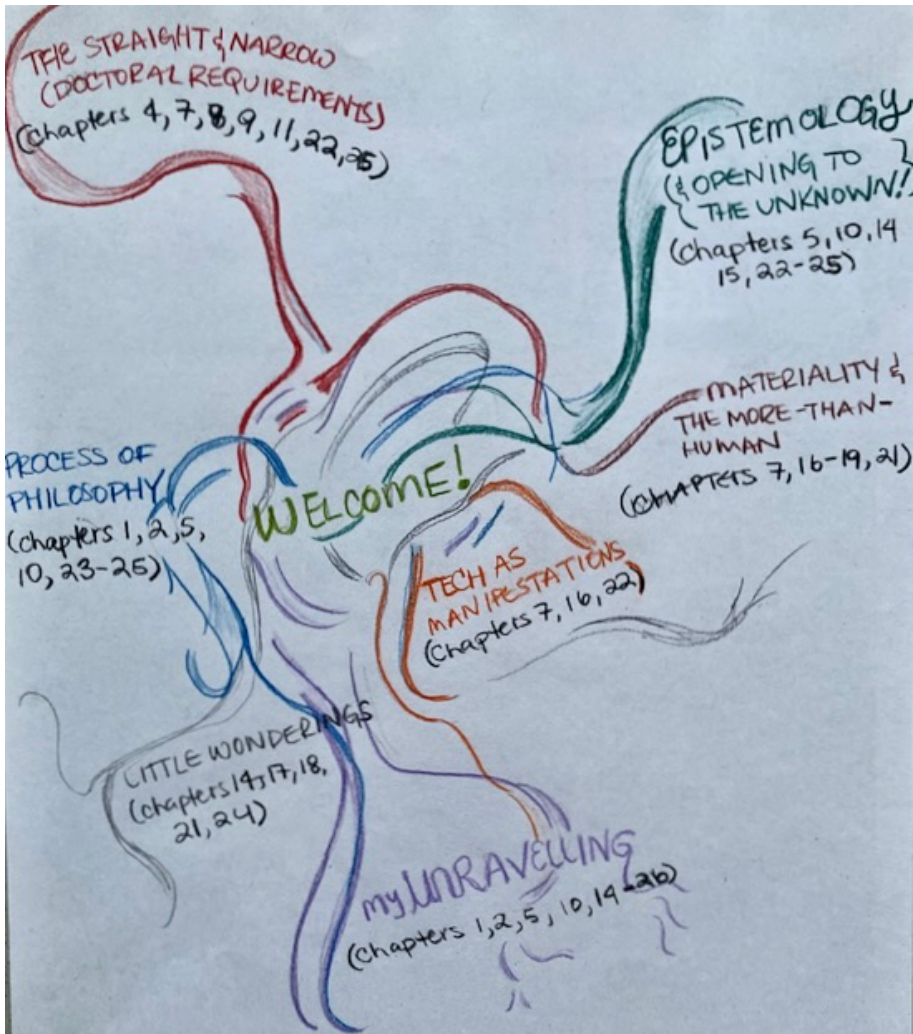 THE STRAIGHT & NARROW
(DOCTORAL REQUIREMENTS)
(Chapters 4, 7, 8, 9, 11, 22, 25)
EPISTEMOLOGY
(& OPENING TO
THE UNKNOWN!)
(Chapters 5, 10, 14
15, 22-25)
MATERIALITY &
THE MORE-THAN-
HUMAN
(CHAPTERS 7, 16-19, 21)
PROCESS OF
PHILOSOPHY
(Chapters 1, 2, 5,
10, 23-25)
WELCOME!
TECH AS
MANIFESTATIONS
(Chapters 7, 16, 22)
LITTLE WONDERINGS
(Chapters 14, 17, 18,
21, 24)
my UNRAVELLING
(Chapters 1, 2, 5, 10, 14-26)